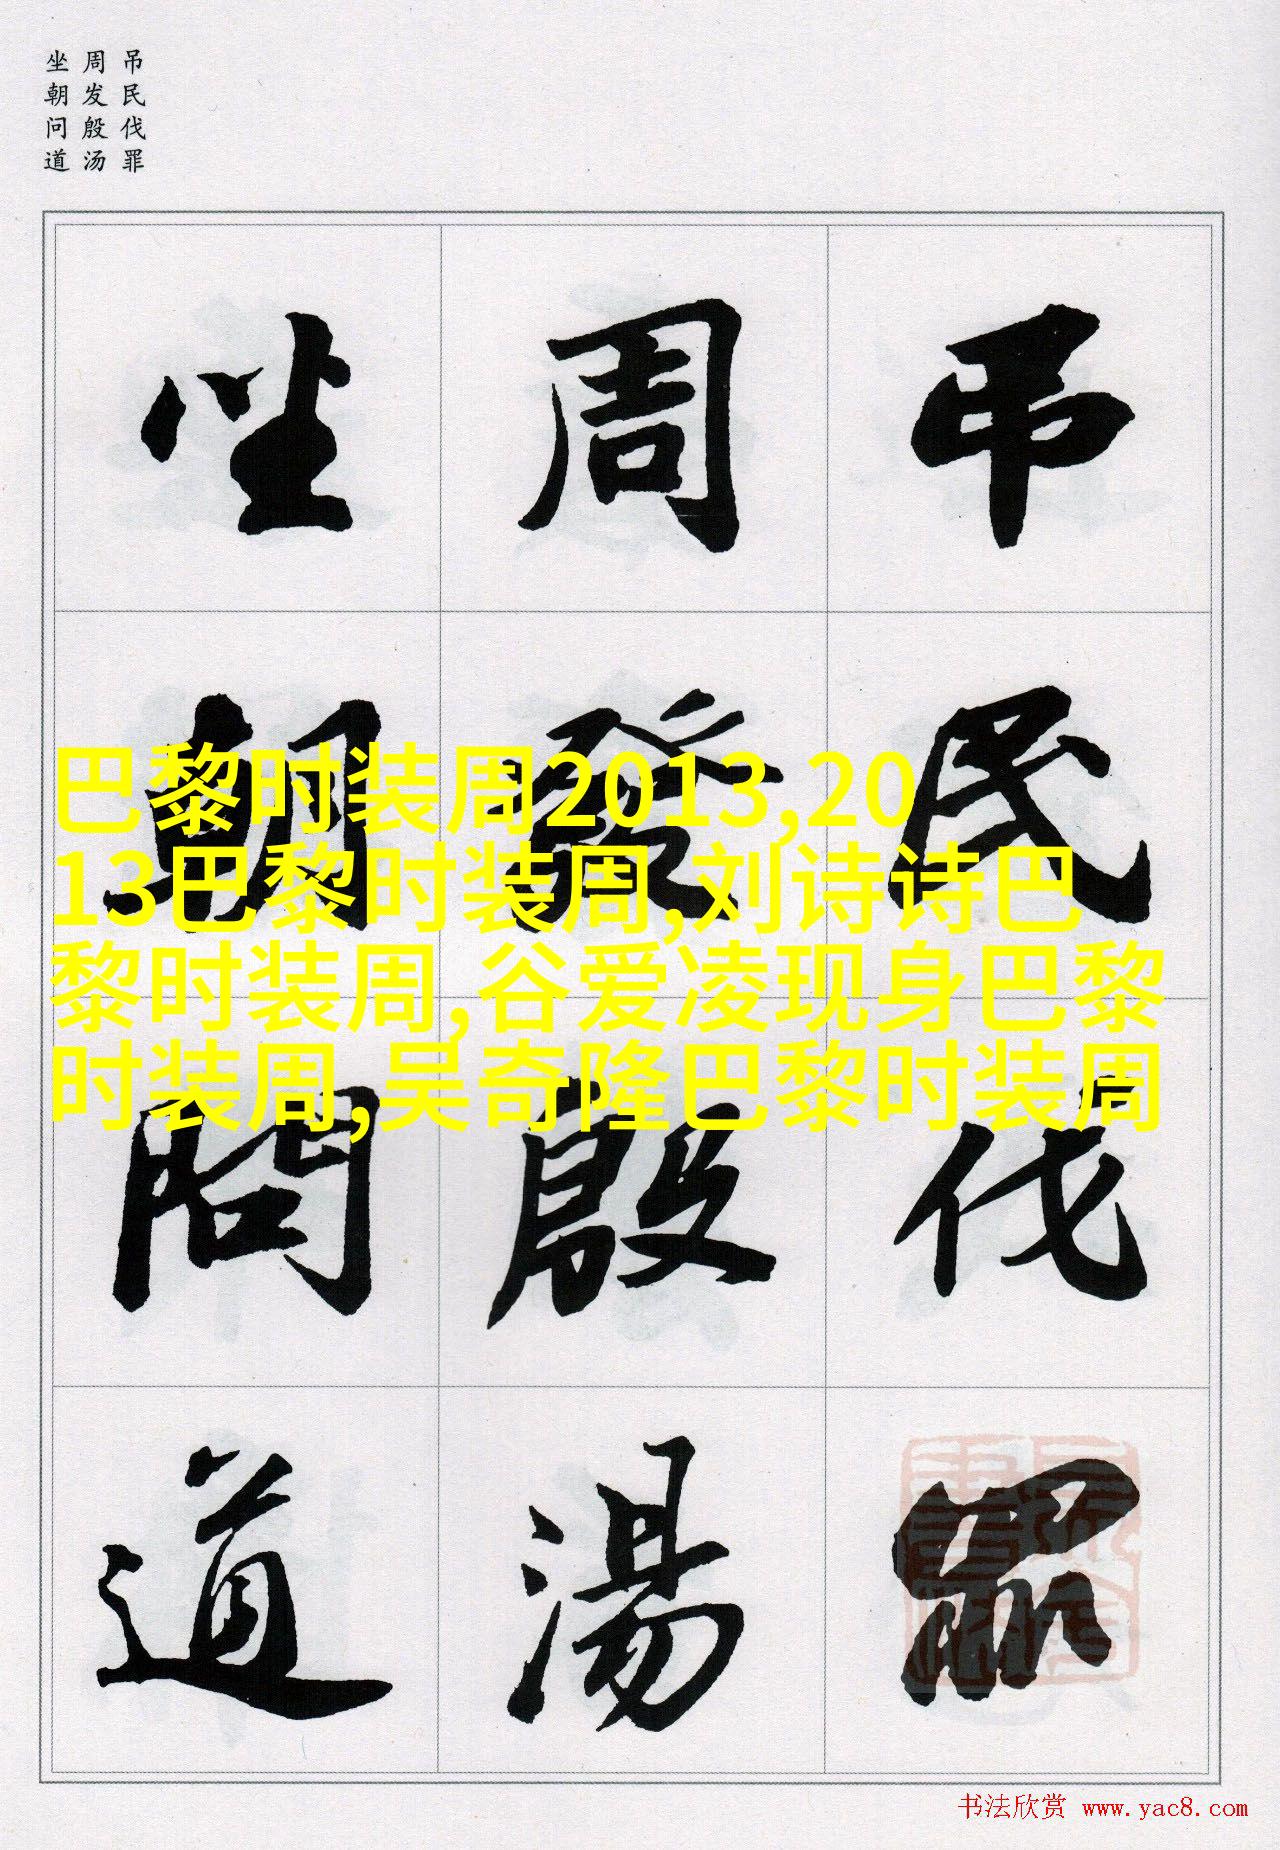 吊民伐罪
周发殷汤
坐朝问道
吊民伐罪
周發殷湯
坐朝問道
巴黎时装周2013,20
13巴黎时装周,刘诗诗巴
黎时装周,谷爱凌现身巴黎
时装周,吴奇隆巴黎时装周
书法欣赏 www.yac8.com